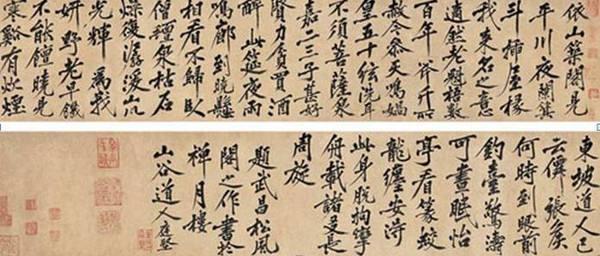 依山築閣見
平川夜闌箕
斗插屋椽
我來名之意
適然老魁梧數
百年斧斤所
赦今參天鳴媧
皇五十弦洗耳
不須菩薩泉
嘉二三子甚好
賢力貧買酒
醉此筵夜雨
鳴廊到曉懸
相看不歸臥
僧氈泉枯石
燥復潺湲山川
光輝為我
妍野老早饑
不能饘曉見
寒谿有炊煙
東坡道人已
張矦
何時到眼前
釣臺驚濤
可晝怡
亭看篆蛟
龍纏安淂
此身脫拘攣
舟載諸長
周旋
題武昌松風
閣之作書於
禅月樓
山谷道人庭堅